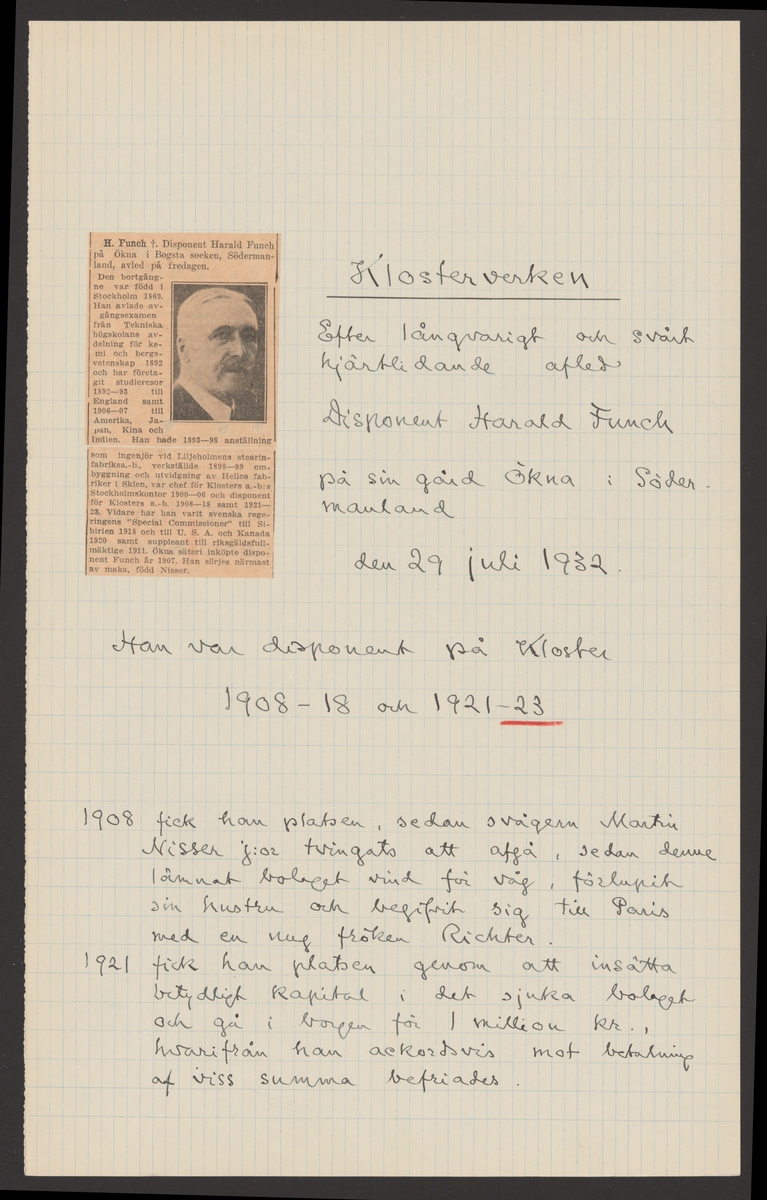 H. Funch †. Disponent Harald Funch
på Ökna i Bogsta socken, Söderman-
land, avled på fredagen.
Den bortgång-
ne var född i
Stockholm 1869.
Han avlade av-
gångsexamen
från Tekniska
högskolans av-
delning för ke-
mi och bergs-
vetenskap 1892
och har företa-
git studieresor
1892—93 till
England samt
1906—07 till
Amerika, Ja-
pan, Kina och
Indien. Han hade 1893—98 anställning
som ingenjör vid Liljeholmens stearin-
fabriksa.-b., verkställde 1898—99 om-
byggning och utvidgning av Helios fab-
riker i Skien, var chef för Klosters a.-b:s
Stockholmskontor 1900—06 och disponent
för Klosters a.-b. 1908—18 samt 1921—
23. Vidare har han varit svenska rege-
ringens "Special Commissioner" till Si-
birien 1918 och till U. S. A. och Kanada
1920 samt suppleant till riksgäldsfull-
mäktige 1911. Ökna säteri inköpte dispo-
nent Funch år 1907. Han sörjes närmast
av maka, född Nisser.
Klosterverken
Efter långvarigt och svårt
hjärtlidande afled
Disponent Harald Funch
på sin gård Ökna i Söder-
manland
den 29 juli 1932.
Han var disponent på Kloster
1908-18 och 1921-23
1908 fick han platsen, sedan svågern Martin
Nisser j:or tvingats att afgå, sedan denne
lämnat bolaget vind för våg, förlupit
sin hustru och begifvit sig till Paris
med en ung fröken Richter.
1921 fick han platsen genom att insätta
betydligt kapital i det sjuka bolaget
och gå i borgen för 1 million kr.,
hvarifrån han ackordsvis mot betalning
af viss summa befriades.